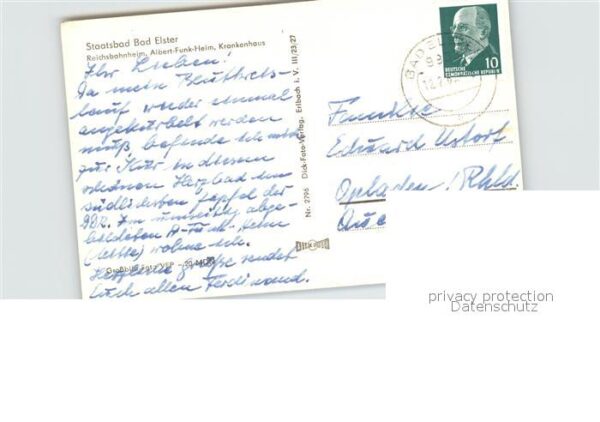 Staatsbad Bad Elster
Reichsbahnheim, Albert-Funk-Heim, Krankenhaus
Ihr Lieben!
Da mein Blutkreis-
lauf wieder einmal
angekurbelt werden
muß, befinde ich mich
zur Kur in diesem
schönen Herzbad im
südlichsten Zipfel der
DDR. Im umseitig abge-
bildeten A-Funk-Heim
wohne ich.
Herzliche Grüße sendet
Euch allen Ferdinand.
Nr. 2796 Dick-Foto-Verlag, Erlbach i. V. III/23/27
BAD EL
10
DEUTSCHE
DEMOKRATISCHE REPUBLIK
Familie
Eduard Ustorf
Opladen/Rhld.
privacy protection
Datenschutz